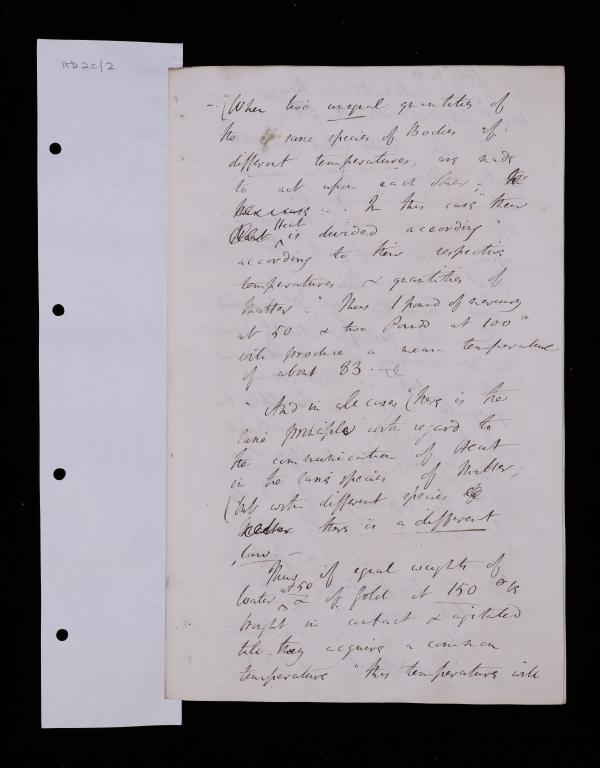 HD 2c/2
- "(When two unequal quantities of
the same species of Bodies of
different temperatures, are made
to act upon each other;
- In this case "their
Heat
is divided according"
according to their respective
temperatures & quantities of
Matter." Thus 1 pound of mercury
at 50 & two Pounds at 100°
will produce a mean temperature
of about 83. -
"And in all cases" (there is the
same principle with regard to
the communication of Heat
in the same species of Matter;
(but with different species
there is a different
law. -
Thus if equal weights of
at 50
Water & of Gold at 150° is
brought in contact & agitated
till they acquire a common
temperature "this temperature will